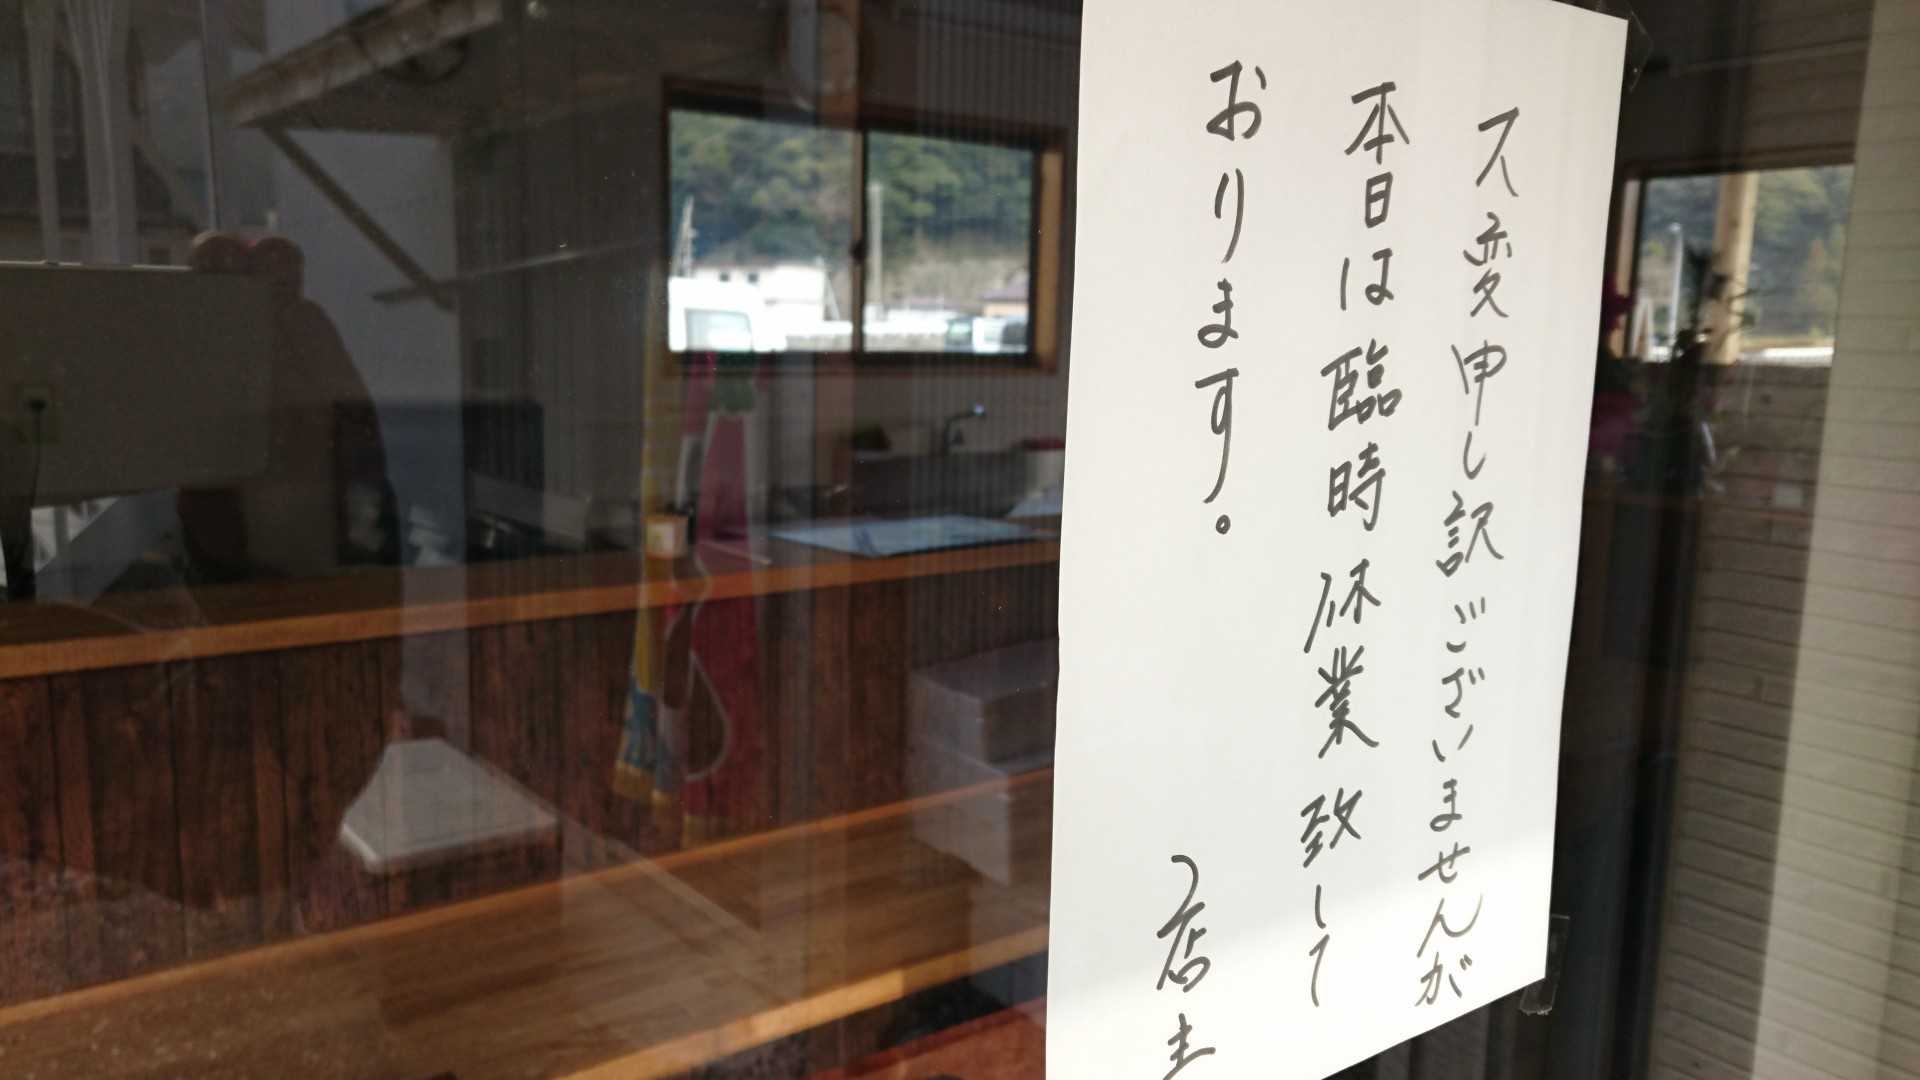 大変申し訳ございませんが
本日は臨時休業致して
おります。
店主